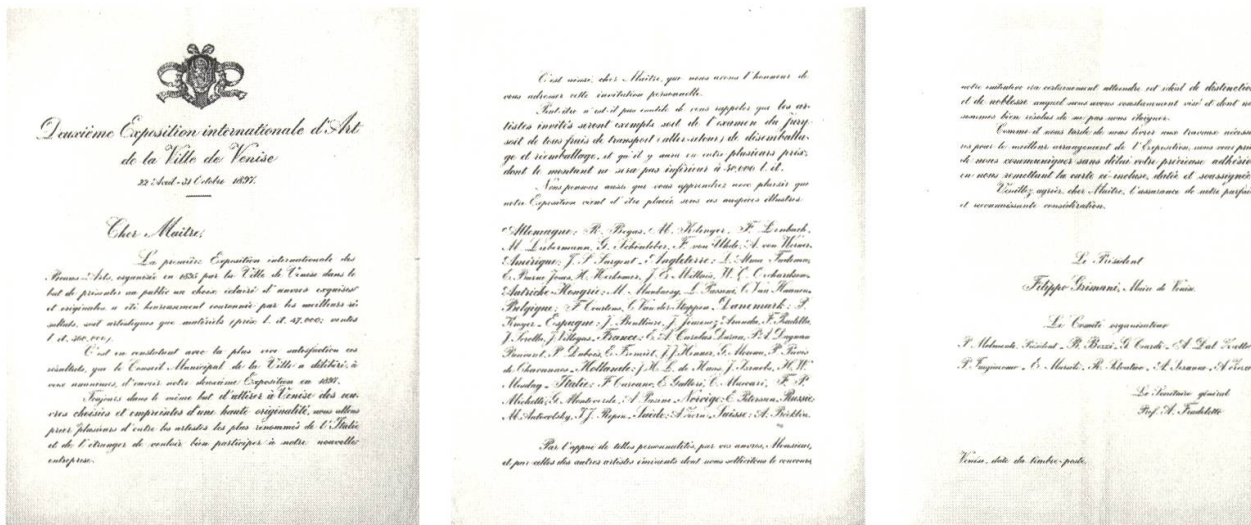 Deuxième Exposition internationale d'Art
de la Ville de Venise
22 Avril - 31 Octobre 1897.
Cher Maître,
La première Exposition internationale des
Beaux-Arts, organisée en 1895 par la Ville de Venise dans le
but de présenter au public un choix éclairé d'œuvres exquises
et originales a été heureusement couronnée par les meilleurs ré-
sultats, soit artistiques que matériels (prix: l. it. 47,000; ventes
l. it. 360,000).
C'est en constatant avec la plus vive satisfaction ces
résultats, que le Conseil Municipal de la Ville a délibéré, à
voix unanimes, d'ouvrir notre deuxième Exposition en 1897.
Toujours dans le même but d'attirer à Venise des œu-
vres choisies et empreintes d'une haute originalité, nous allons
prier plusieurs d'entre les artistes les plus renommés de l'Italie
et de l'étranger de vouloir bien participer à notre nouvelle
entreprise.
C'est ainsi, cher Maître, que nous avons l'honneur de
vous adresser cette invitation personnelle.
Peut-être n'est-il pas inutile de vous rappeler que les ar-
tistes invités seront exempts soit de l'examen du jury
soit de tous frais de transport (aller-retour), de désemballa-
ge et réemballage, et qu'il y aura en outre plusieurs prix,
dont le montant ne sera pas inférieur à 40,000 l. it.
Nous pensons aussi que vous apprendrez avec plaisir que
notre Exposition vient d'être placée sous ces auspices illustres:
Allemagne: R. Begas, M. Klinger, F. Lenbach,
M. Liebermann, G. Schönleber, F. von Uhde, A. von Werner.
Amérique: J. S. Sargent. Angleterre: L. Alma Tadema,
E. Burne Jones, H. Herkomer, J. E. Millais, W. Q. Orchardson.
Autriche-Hongrie: M. Munkacsy, L. Passini, C. Van Haanen.
Belgique: F. Courtens, C. Van der Stappen. Danemark: P.
Kroyer. Espagne: J. Benlliure, J. Jimenez Aranda, F. Pradilla,
J. Sorolla, J. Villegas. France: E. A. Carolus Duran, P. A. Dagnan
Bouveret, P. Dubois, E. Fremiet, J. J. Henner, G. Moreau, P. Puvis
de Chavannes. Hollande: J. H. L. de Haas, J. Israels, H. W.
Mesdag. Italie: F. Carcano, E. Gallori, C. Maccari, F. P.
Michetti, G. Monteverde, A. Pasini. Norvège: E. Petersen. Russie:
M. Antocolsky, I. J. Repin. Suède: A. Zorn. Suisse: A. Böcklin.
Par l'appui de telles personnalités, par vos œuvres, Monsieur,
et par celles des autres artistes éminents dont nous sollicitons le concours
notre initiative ira certainement atteindre cet idéal de distinction
et de noblesse auquel nous avons constamment visé et dont nous
sommes bien résolus de ne pas nous éloigner.
Comme il nous tarde de nous livrer aux travaux nécessai-
res pour le meilleur arrangement de l'Exposition, nous vous prions
de nous communiquer sans délai votre précieuse adhésion
en nous remettant la carte ci-incluse, datée et soussignée.
Veuillez agréer, cher Maître, l'assurance de notre parfaite
et reconnaissante considération.
Le Président
Filippo Grimani, Maire de Venise
Le Comité organisateur
P. Molmenti, Président - B. Bezzi - G. Ciardi - A. Dal Zotto
P. Fragiacomo - E. Marsili - R. Selvatico - A. Sezanne - A.
Le Secrétaire général
Prof. A. Fradeletto
Venise, date du timbre-poste.